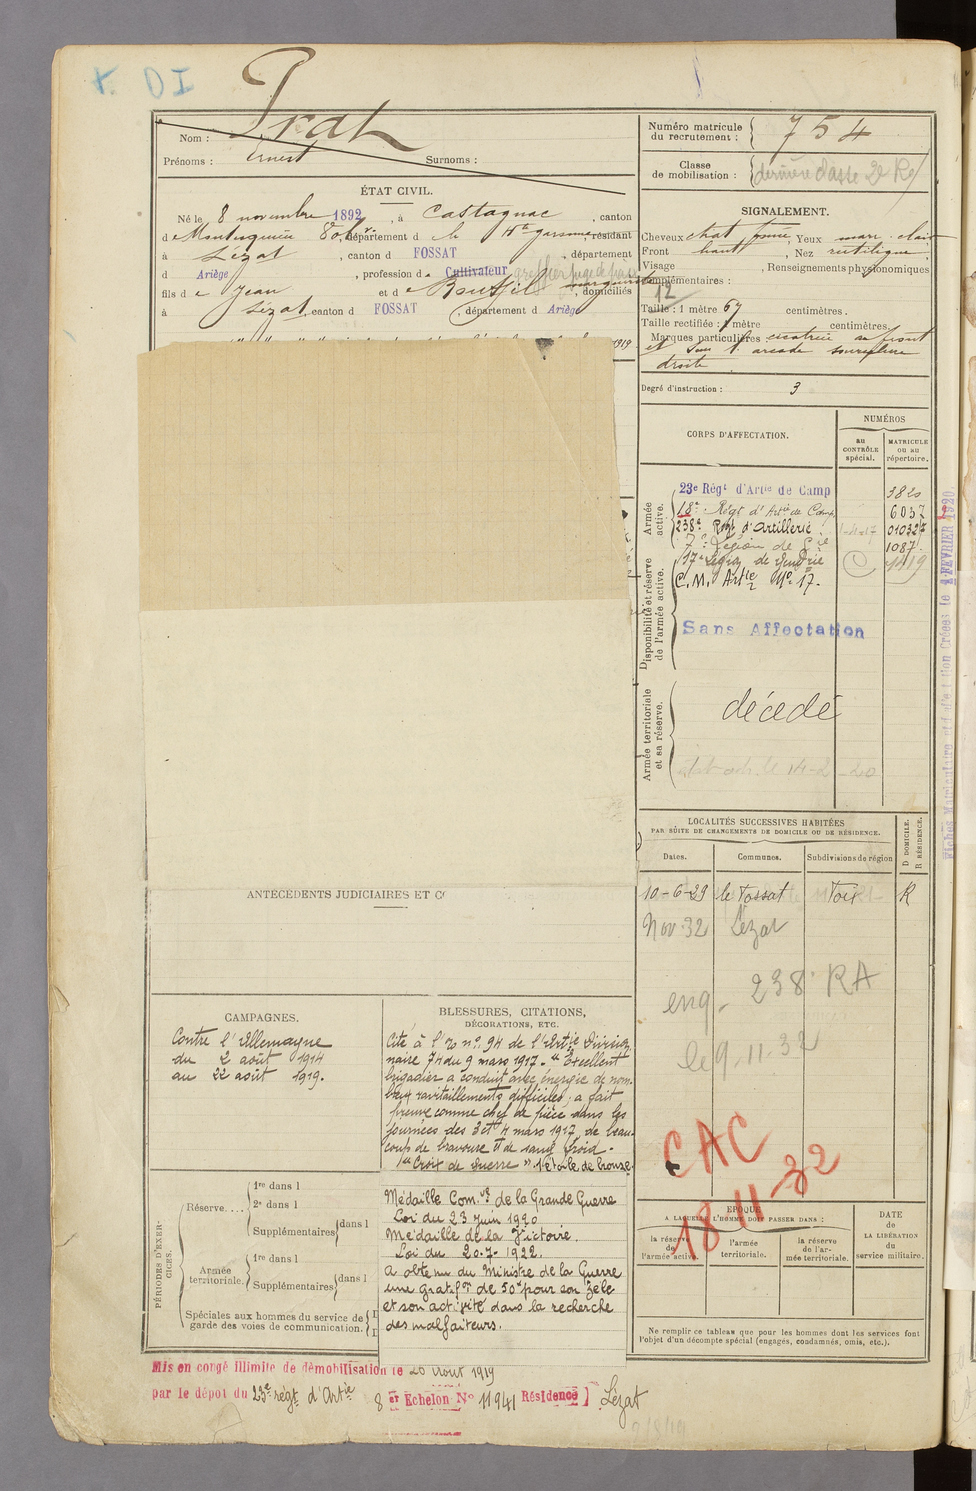 DI
Nom : Prat
Prénoms : Ernest Surnoms :
ÉTAT CIVIL.
Né le 8 novembre 1892, à Castagnac, canton
de Montesquieu Volv., département d la Hte Garonne, résidant
à Lézat, canton d FOSSAT, département
d Ariège, profession de Cultivateur greffier juge de paix
fils de Jean et de Boussil marguerite, domiciliés
à Lézat, canton d FOSSAT, département d Ariège
1919
ANTÉCÉDENTS JUDICIAIRES ET CO
CAMPAGNES.
Contre l'Allemagne
du 2 août 1914
au 22 août 1919.
BLESSURES, CITATIONS,
DÉCORATIONS, ETC.
Cité à l'O n° 94 de l'Artie Division
naire 74 du 9 mars 1917. "Excellent
brigadier a conduit avec énergie de nom
breux ravitaillements difficiles, a fait
preuve comme chef de pièce dans les
journées des 3 et 4 mars 1917, de beau-
coup de bravoure et de sang froid.
"Croix de Guerre" 1 étoile de bronze.
Médaille Com.ve de la Grande Guerre
Loi du 23 juin 1920
Médaille de la Victoire.
Loi du 20-7-1922.
a obtenu du Ministre de la Guerre
une gratifon de 50f pour son zèle
et son activité dans la recherche
des malfaiteurs.
PÉRIODES D'EXERCICES.
Réserve....
1re dans l
2e dans l
Supplémentaires dans l
Armée territoriale.
1re dans l
Supplémentaires dans l
Spéciales aux hommes du service de
garde des voies de communication.
Mis en congé illimité de démobilisation le 20 Août 1919
par le dépôt du 23e régt d'Artie 8 er Echelon No 11941 Résidence Lézat
Numéro matricule
du recrutement : 754
Classe
de mobilisation : dernière classe 2e Re
SIGNALEMENT.
Cheveux chat foncé, Yeux marr. clair
Front haut, Nez rectiligne
Visage , Renseignements physionomiques
complémentaires :
12
Taille : 1 mètre 67 centimètres.
Taille rectifiée : 1 mètre centimètres.
Marques particulières : cicatrice au front
et sous l'arcade sourcilière
droite
Degré d'instruction : 3
CORPS D'AFFECTATION.
NUMÉROS
au CONTRÔLE spécial.
MATRICULE ou au répertoire.
Armée active.
23e Régt d'Artie de Camp 3820
18e Régt d'Artie de Camp 6037
238e Regt d'Artillerie 1-4-17 01032
7e Légion de Gie 1087
Disponibilité et réserve de l'armée active.
17e Légion de Gendrie
C. M. Artie No 17.
Sans Affectation
Armée territoriale et sa réserve.
décédé
14-2-20
LOCALITÉS SUCCESSIVES HABITÉES
PAR SUITE DE CHANGEMENTS DE DOMICILE OU DE RÉSIDENCE.
D DOMICILE.
R RÉSIDENCE.
Dates. Communes. Subdivisions de région
10-6-23 le Fossat Foix R
Nov. 32 Lézat
eng. 238e RA
le 9.11.32
CAC
18 11-32
ÉPOQUE
A LAQUELLE L'HOMME DOIT PASSER DANS :
la réserve de l'armée active.
l'armée territoriale.
la réserve de l'armée territoriale.
DATE
de
LA LIBÉRATION
du
service militaire.
Ne remplir ce tableau que pour les hommes dont les services font
l'objet d'un décompte spécial (engagés, condamnés, omis, etc.).